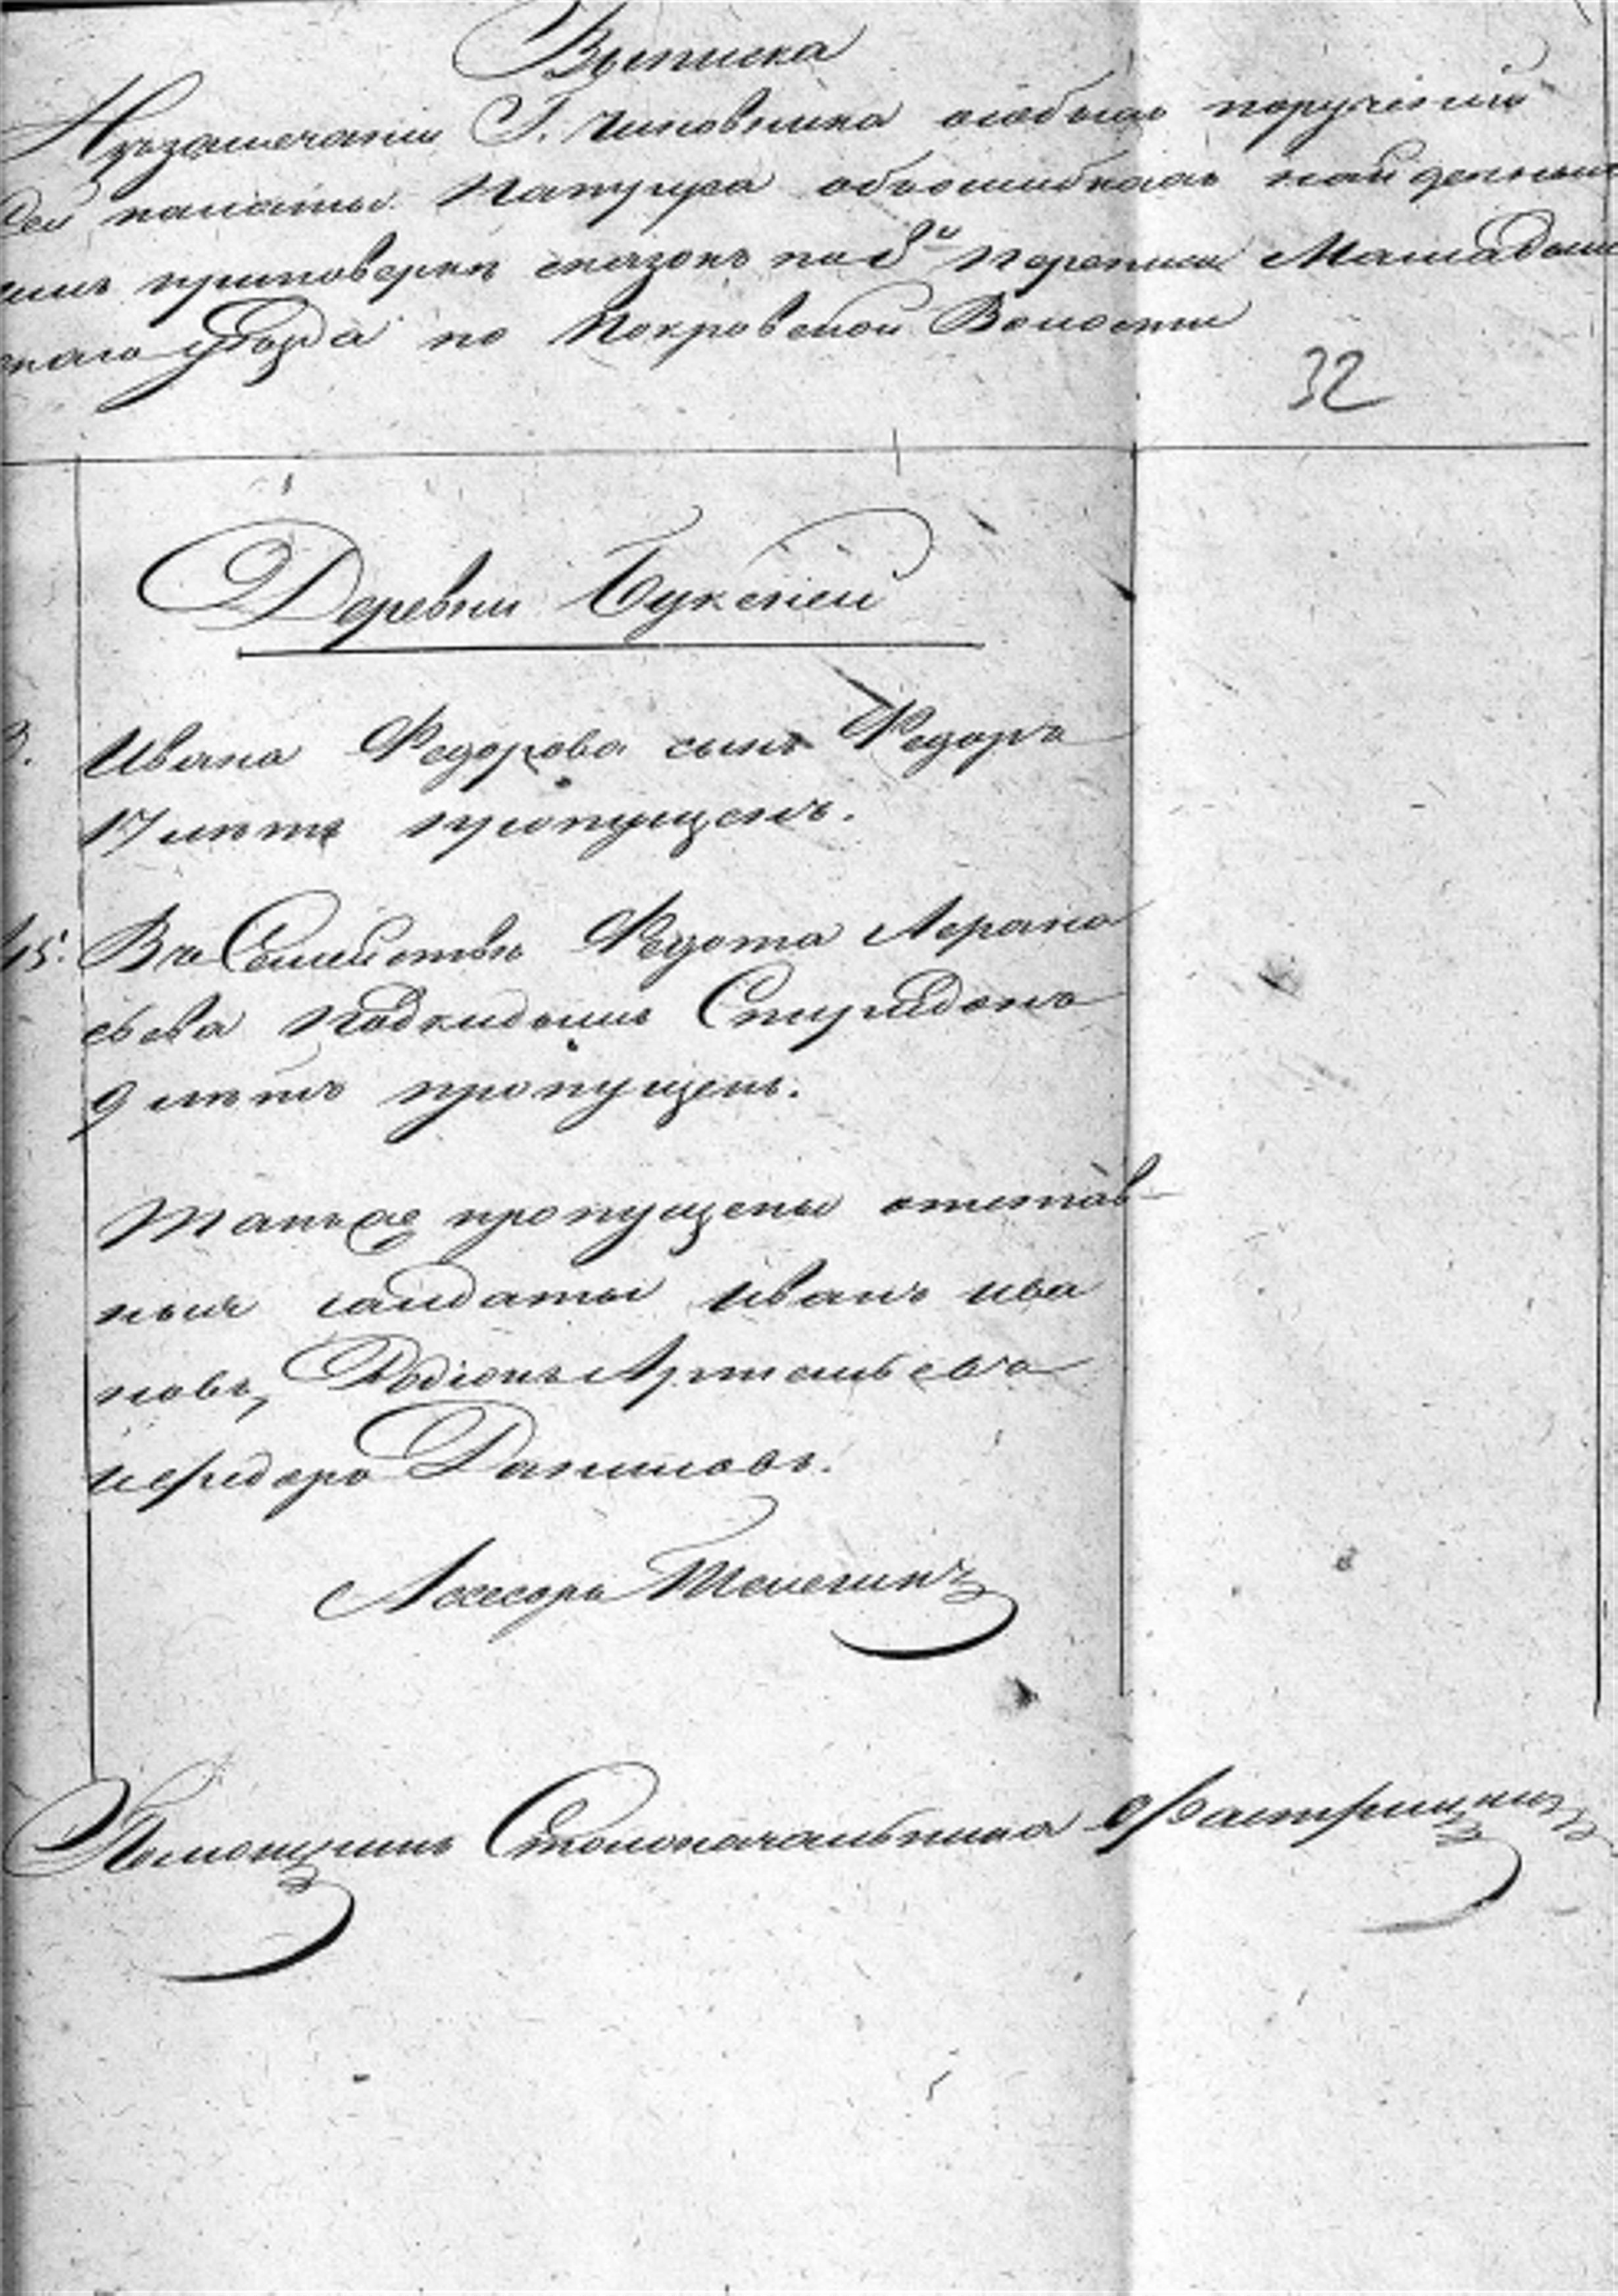 Выписка
Изъ замечаній Г. Чиновника особыхъ порученій
сей палаты объ ошибкахъ найденныхъ
имъ при поверке сказокъ по 8й переписи Мамадыш
скаго уезда по Покровской Волости
32
Деревни Букеней
3. Ивана Федорова сынъ Федоръ
17 летъ пропущенъ.
15. Въ Семействе Федота Афана
сьева подкидышъ Спиридонъ
9 летъ пропущенъ.
Такъ же пропущены отстав-
ныя салдаты Иванъ Ива
новъ, Родіонъ Артемьевъ
и Федоръ Даниловъ.
Асессоръ Телегинъ
Помощникъ Столоначальника